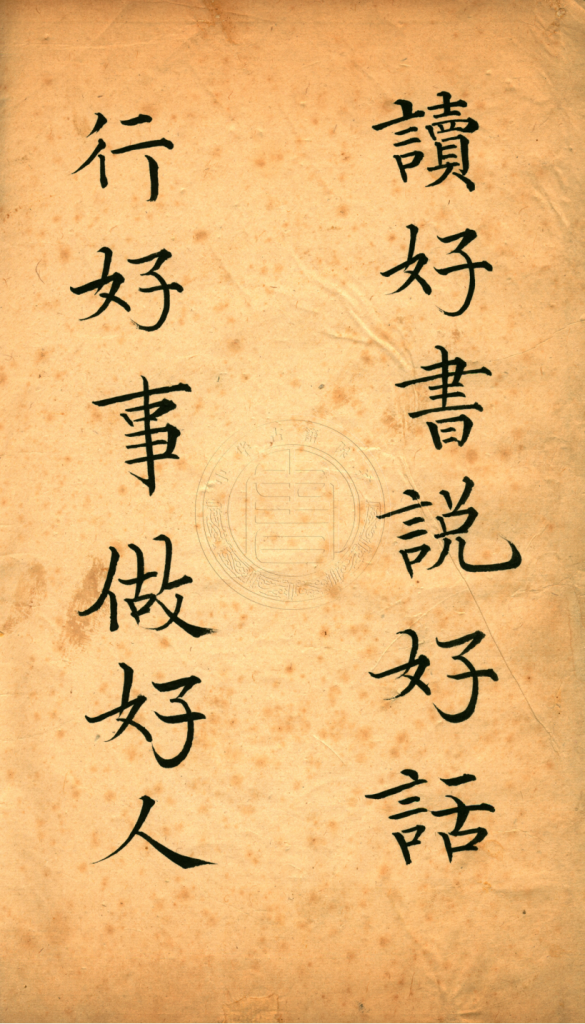 讀好書説好話
行好事做好人